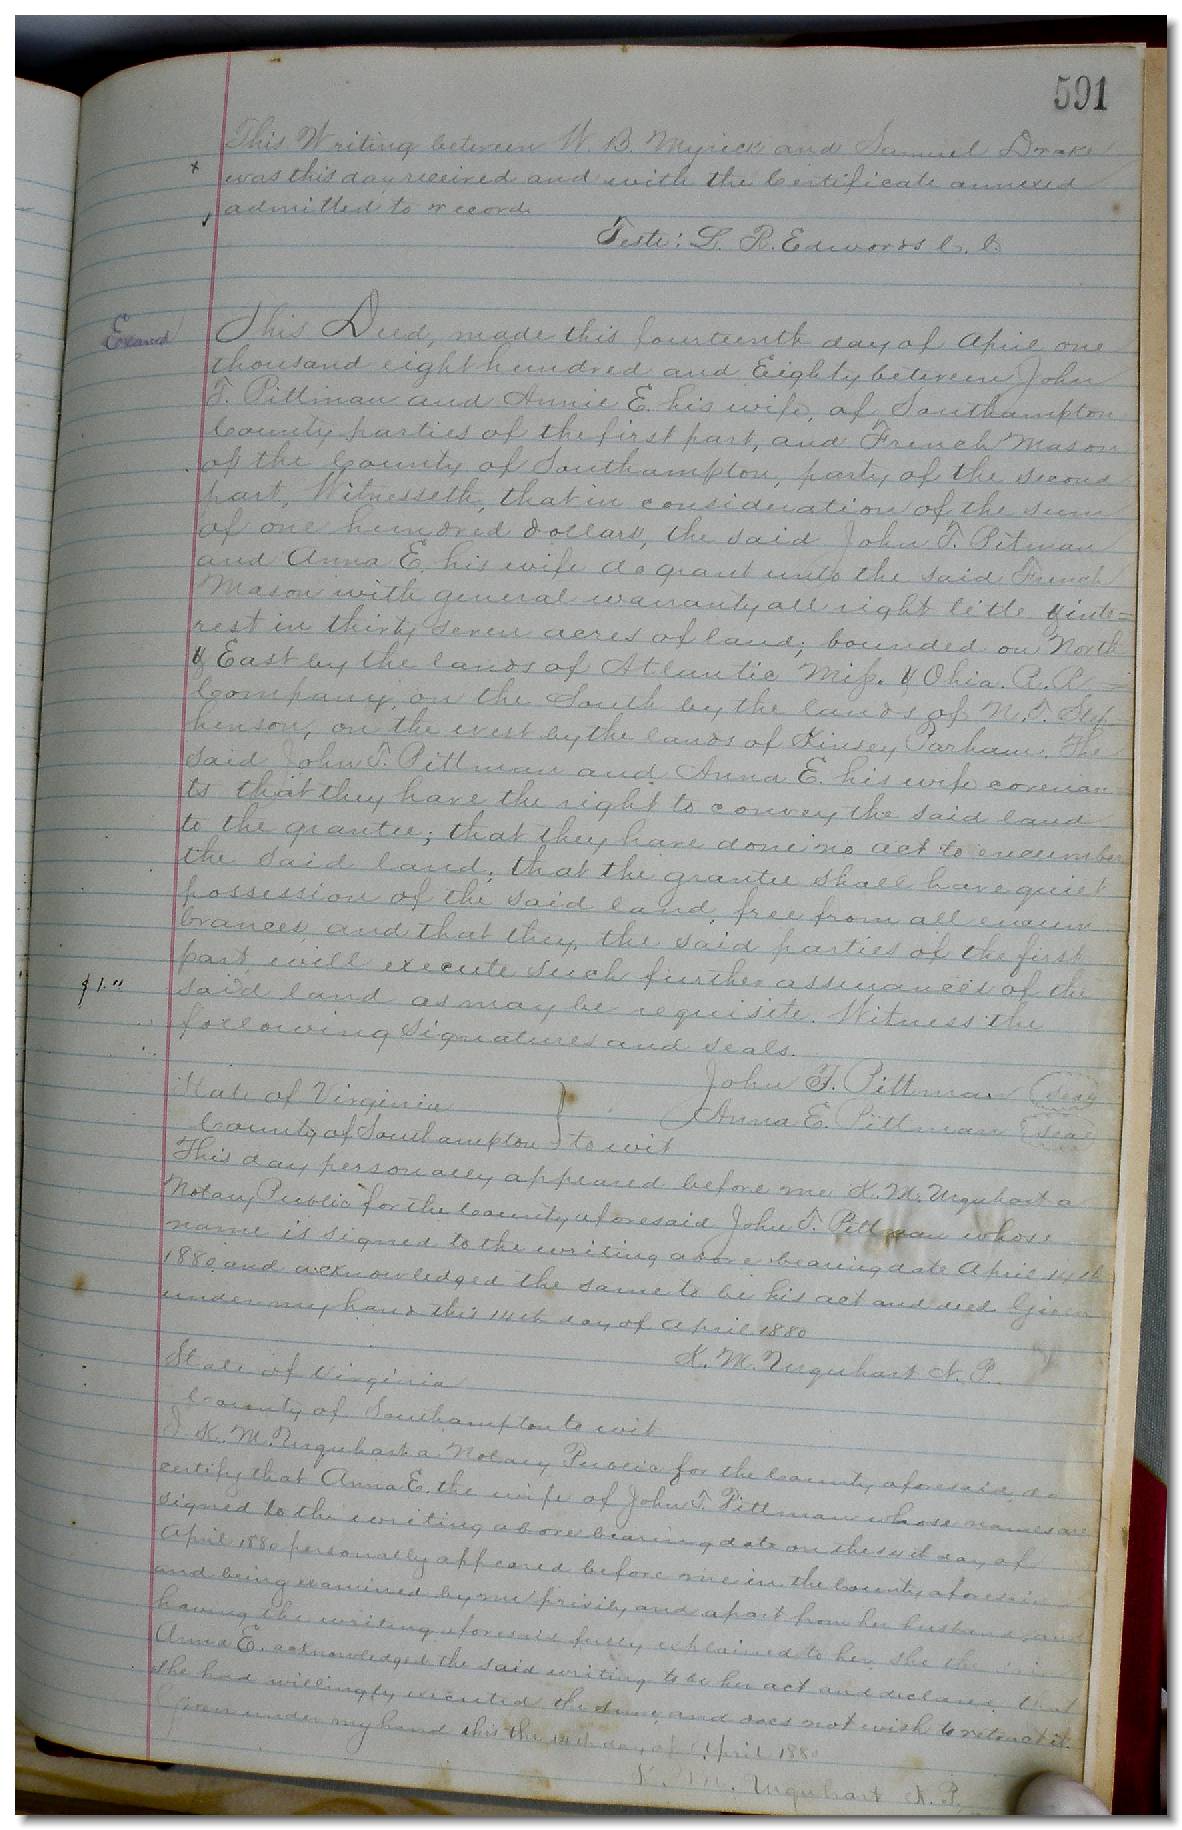 591
This Writing between W. B. Myrick and Samuel Drake
x was this day received and with the Certificate annexed
admitted to record
Teste: L. R. Edwards C. C.
Examd This Deed, made this fourteenth day of April one
thousand eight hundred and Eighty between John
T. Pittman and Annie E. his wife, of Southampton
County parties of the first part, and French Mason
of the County of Southampton, party of the second
part, Witnesseth, that in consideration of the sum
of one hundred dollars, the said John T. Pitman
and Anna E. his wife do grant unto the said French
Mason with general warranty all right title & inte=
rest in thirty seven acres of land; bounded on North
& East by the lands of Atlantic Miss. & Ohia. R. R. =
Company, on the South by the lands of N. T. Step
henson, on the west by the lands of Kinsey Parham. The
said John T. Pittman and Anna E. his wife covenan
ts that they have the right to convey the said land
to the grantee; that they have done no act to encumber
the said land; that the grantee shall have quiet
possession of the said land, free from all encum
brances, and that they, the said parties of the first
part, will execute such further assurances of the
$1." said land as may be requisite. Witness the
following signatures and seals.
John T. Pittman (Seal)
Anna E. Pittman (Seal)
State of Virginia
County of Southampton } to wit
This day personally appeared before me K. M. Urquhart a
Notary Public for the County aforesaid John T. Pittman whose
name is signed to the writing above bearing date April 14th
1880 and acknowledged the same to be his act and deed Given
under my hand this 14th day of April 1880
K. M. Urquhart N. P.
State of Virginia
County of Southampton to wit
I K. M. Urquhart a Notary Public for the County aforesaid do
certify that Anna E. the wife of John T. Pittman whose names are
signed to the writing above bearing date on the 14th day of
April 1880 personally appeared before me in the County aforesaid
and being examined by me privily and apart from her husband, and
having the writing aforesaid fully explained to her she the said
Anna E. acknowledged the said writing to be her act and declared that
she had willingly executed the same and does not wish to retract it.
Given under my hand this the 14th day of April 1880
K. M. Urquhart N. P.